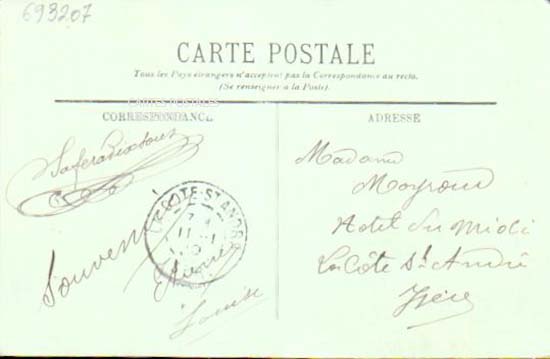 693207
CARTE POSTALE
Tous les Pays étrangers n'acceptent pas la Correspondance au recto.
(Se renseigner à la Poste).
CARTES POSTALES
CORRESPONDANCE
ADRESSE
Souvenir
Louise
LA COTE-ST ANDRÉ
Madame
Moyroud
Hotel du Midi
La Côte St André
Isère